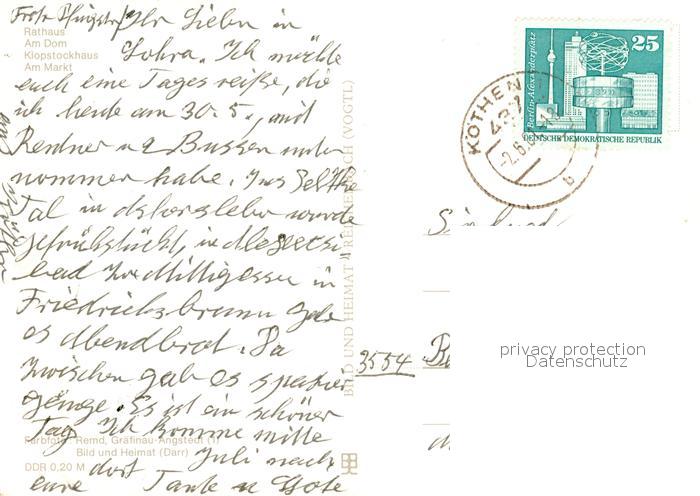 Ihr Lieben in
Rathaus
Am Dom
Klopstockhaus
Am Markt
Lohra. Ich möchte
euch eine Tages reiße, die
ich heute am 30. 5., mit
Rentner u 2 Bussen unter
nommer habe. Ins Selke
Tal in wurde
gefrühstückt, in
bad zu Mittigessen in
Friedrichsbrunn gab
es Abendbrot. Da
zwischen gab es spatzier
gänge. Es ist ein schöner
Tag Ich komme mitte
Juli nach
dort
eure Tante u
Farbfoto: Remd, Gräfinau-Angstedt (1)
Bild und Heimat (Darr)
DDR 0,20 M
BILD UND HEIMAT REICHENBACH (VOGTL)
25
Berlin-Alexanderplatz
DEUTSCHE DEMOKRATISCHE REPUBLIK
KÖTHEN
437
b
3554
privacy protection
Datenschutz